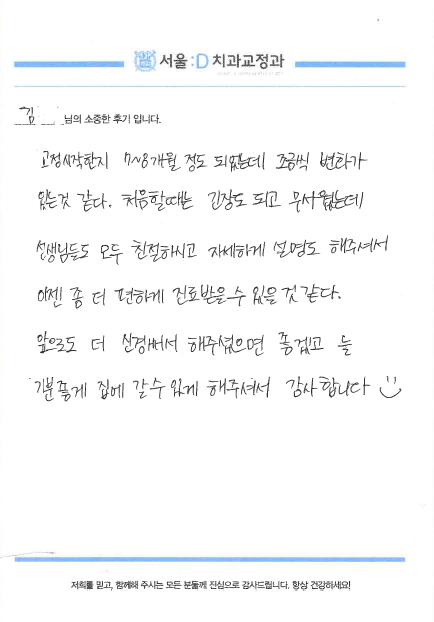 서울:D 치과교정과
김 님의 소중한 후기 입니다.
교정시작한지 7~8개월 정도 되었는데 조금씩 변화가
있는것 같다. 처음할때는 긴장도 되고 무서웠는데
선생님들도 모두 친절하시고 자세하게 설명도 해주셔서
이젠 좀 더 편하게 진료받을수 있을 것 같다.
앞으로도 더 신경써서 해주셨으면 좋겠고 늘
기분좋게 집에 갈수 있게 해주셔서 감사합니다
저희를 믿고, 함께해 주시는 모든 분들께 진심으로 감사드립니다. 항상 건강하세요!